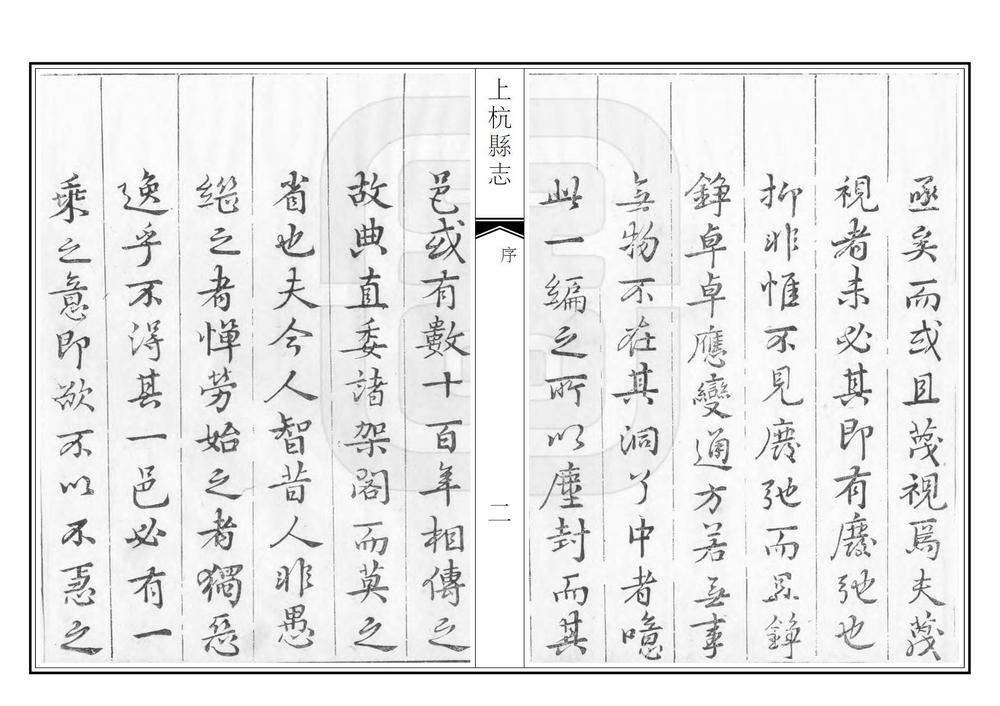 亟矣而或且蔑視焉夫蔑
視者未必其即有廢弛也
抑非惟不見廢弛而錚
錚卓卓應變通方若无事
無物不在其洞中者噫
此一編之所以塵封而其
上杭縣志
序
二
邑或有數十百年相傳之
故典直委諸架閣而莫之
省也夫今人智昔人非愚
繼之者憚勞始之者獨惡
逸乎不得其一邑必有一
乘之意即欲不以不急之